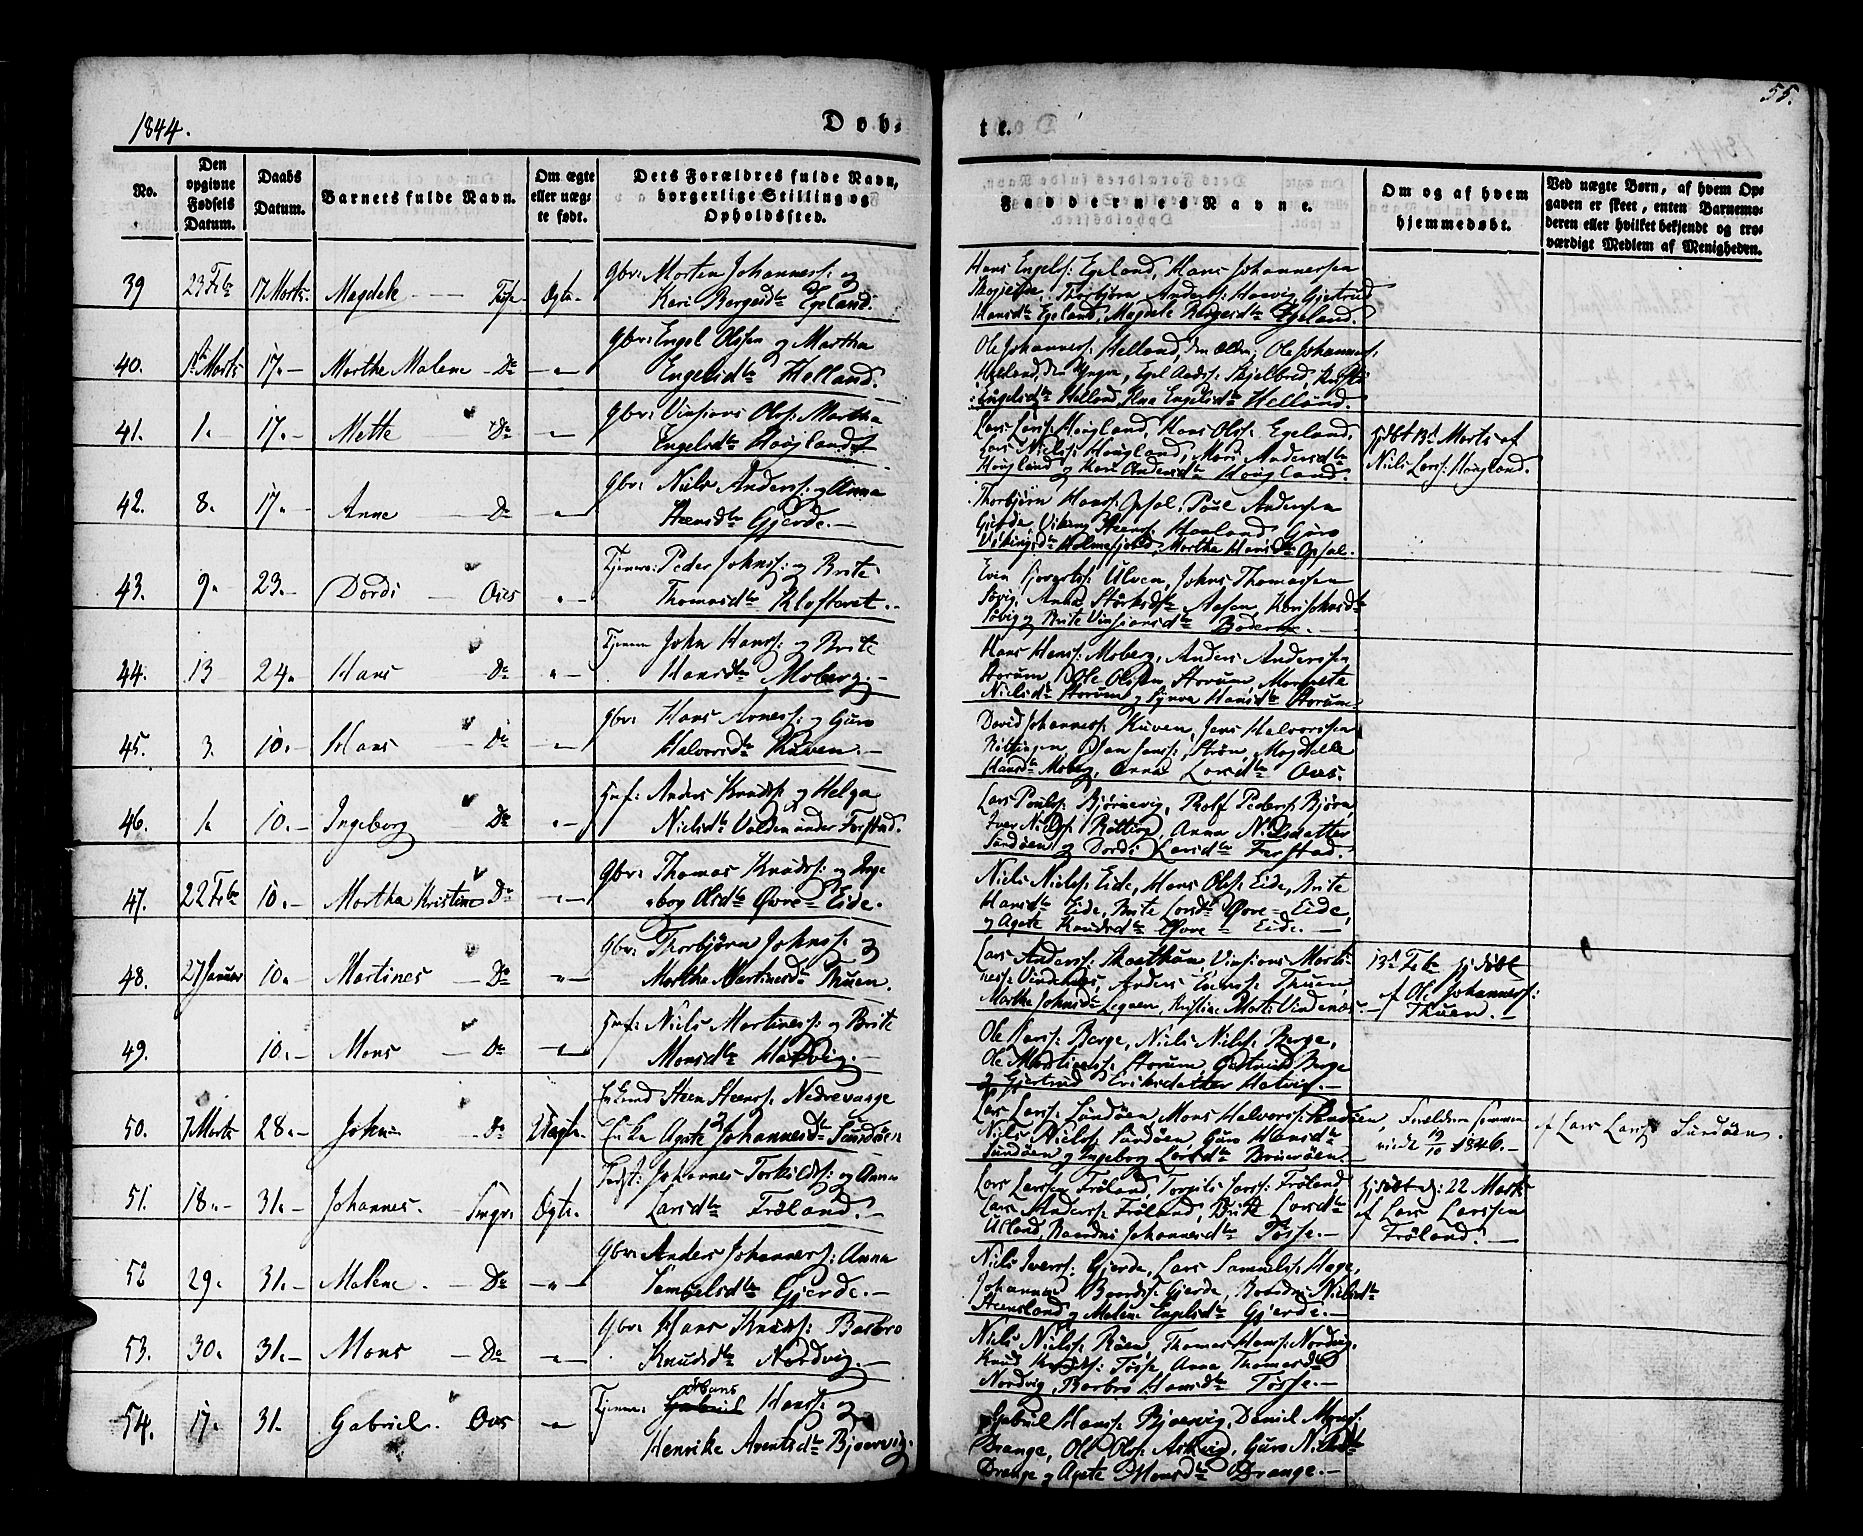 1844.
Døb-
te.
55.
No.
Den opgivne Fødsels Datum.
Daabs Datum.
Barnets fulde Navn.
Om ægte eller uægte født.
Dets Forældres fulde Navn, borgerlige Stilling og Opholdssted.
Faddernes Navne.
Om og af hvem hjemmedøbt.
Ved uægte Børn, af hvem Opgaven er skeet, enten Barnemoderen eller hvilket bekjendt og troværdigt Medlem af Menigheden.
39 23 Feb 17 Marts Magdele Fuse Ægte Gbr: Morten Johanness: og
Kari Borgersd Egeland.
Hans Engelss: Egeland, Hans Johannessen
Thorbjørn Anderss: Gjertrud
Hansd Egeland, Magdele Egeland.
40. 1 Marts 17 Marthe Malene D Gbr: Engel Olssen og Martha
Engelsd Helland.
Ole Johanness: Helland, den Ældre, Ole Johanness:
Helland, den Yngre, Skjelbred,
Engelsd Helland, Engelsd Helland.
41. 1. 17 Mette D Gbr: Vinsians Olss: Martha
Engelsd Hougland
Lars Larss: Hougland, Hans Olss: Egeland,
Lars Nielss: Hougland, Mari Andersd
Hougland og Kari Andersd Hougland.
hjdbt 13 Marts af
Niels Larss: Hougland.
42. 8. 17 Anne D Gbr: Niels Anderss: og Anna
Steensd Gjerde.
Thorbjørn Hanss: Opsal, Poul Andersen
Gjerde, Viking Steenss: Havland, Guro
Vikingsd Holmefjord, Martha Hansd Opsal.
43. 9 23 Dordi Oves Tjenere: Peder Johnss: og Brite
Thomasd Kloftaret.
Ulven, Johns Thomassen
Søvig, Anna Aasen, Kari Johnsd
Søvig og Brite Vinsiansd
44. 13 24 Hans D Tjener John Hanss: og Brite
Hansd Moberg.
Hans Hanss: Moberg, Anders Anderssen
Storum, Ole Olssen Storum, Margrete
Nielsd Storum og Synva Hansd Storum.
45. 3. 10 Hans D Gbr: Hans Arness: og Guro
Halvorsd Kuven.
David Johanness: Kuven, Jens Halvorssen
Strøn, Magdelle
Hansd Moberg, Anna Larsd Oves.
46. 1 10 Ingeborg D Inf: Anders Knudss: og Helga
Nielsd Valden under Ferstad.
Lars Poulss: Bjørnevig, Rolf Pederss: Bjørn,
Iver Nielss: Røttinge, Anna Nielsdatter
Sundøen og Dordi Larsd Ferstad.
47. 22 Feb 10 Martha Kristine D Gbr: Thomas Knudss: og Inge
borg Olsd Øvre-Eide.
Niels Nielss: Eide, Hans Olss: Eide, Brite
Hansd Eide, Brite Larsd Øvre-Eide,
og Agate Knudsd Øvre-Eide.
48. 27 Januar 10 Martines D Gbr: Thorbjørn Johnss: og
Martha Martinesd Thuen.
Lars Anderss: Skaathun, Vinsians Marti-
ness: Vindenæs, Anders Thuen,
Marthe Johnsd Legaen, Kristine Vindenæs.
13 Feb hjdøbt
af Ole Johanness:
Thuen.
49. 10 Mons D Inf: Niels Martiness: og Brite
Monsd Hatvig.
Ole Larss: Berge, Niels Nilss: Berge,
Ole Martiness: Storum, Gjertrud Berge
og Gjertrud Eriksdatter Hatvig.
50. 7 Marts 28 John D Uægte Steen Steenss: Nedrevaage
Enke Agate Johannesd Sundøen
Lars Larss: Sundøen, Mons Halvorss: Sundøen,
Niels Nielss: Sundøen, Guro Hansd
Sundøen og Ingeborg Larsd
Forældrene sammen
viede 19/10 1846.
af Lars Larss Sundøen.
51. 18 31 Johannes. Ægte Johannes Torkildss: og Anna
Larsd Frøland.
Lars Larssen Frøland, Torgils Larss: Frøland,
Lars Anderss: Frøland, Brite Larsd
Johannesd Tøsse.
hjdøbt d: 22 Marts
af Lars Larssen
Frøland.
52 29. 31 Malene. D Gbr: Anders Johanness: Anna
Samuelsd Gjerde.
Niels Iverss: Gjerde, Lars Samuelss: Hage,
Johannes Baardss: Gjerde, Nielsd
Steensland og Malene Engelsd Gjerde.
53. 30. 31 Mons D Gbr: Hans Knudss: Barbro
Knudsd Nordvig.
Niels Nielss: Røen, Thomas Hanss: Nordvig,
Knud Knudss: Tøsse, Anna Thomasd
Nordvig, Barbro Hansd Tøsse.
54. 17. 31 Gabriel. Oves Tjener: Gabriel Hans Hanss: og
Henrike Arentsd Bjørnevig.
Gabriel Hanss: Bjørnevig, Daniel Monss:
Drange, Ole Olss: Askvig, Guro Nielsd
Drange og Agate Monsd Drange.